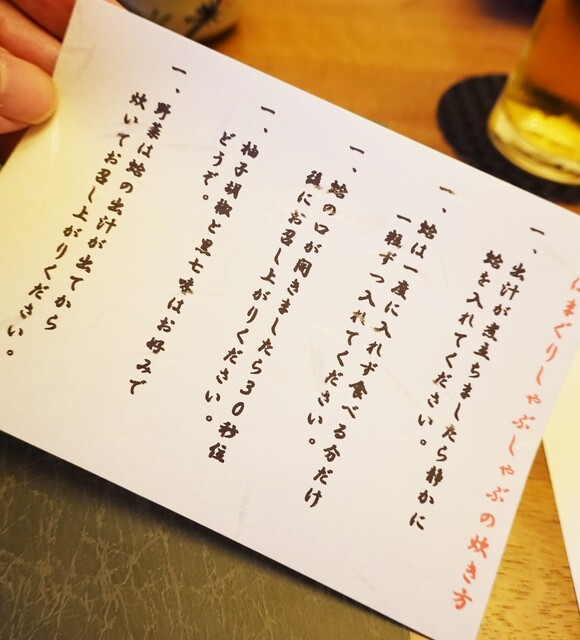 はまぐりしゃぶしゃぶの炊き方
一、出汁が煮立ちましたら静かに
蛤を入れてください。
一、蛤は一度に入れず食べる分だけ
一粒ずつ入れてください。
一、蛤の口が開きましたら30秒位
後にお召し上がりください。
一、柚子胡椒と黒七味はお好みで
どうぞ。
一、野菜は蛤の出汁が出てから
炊いてお召し上がりください。